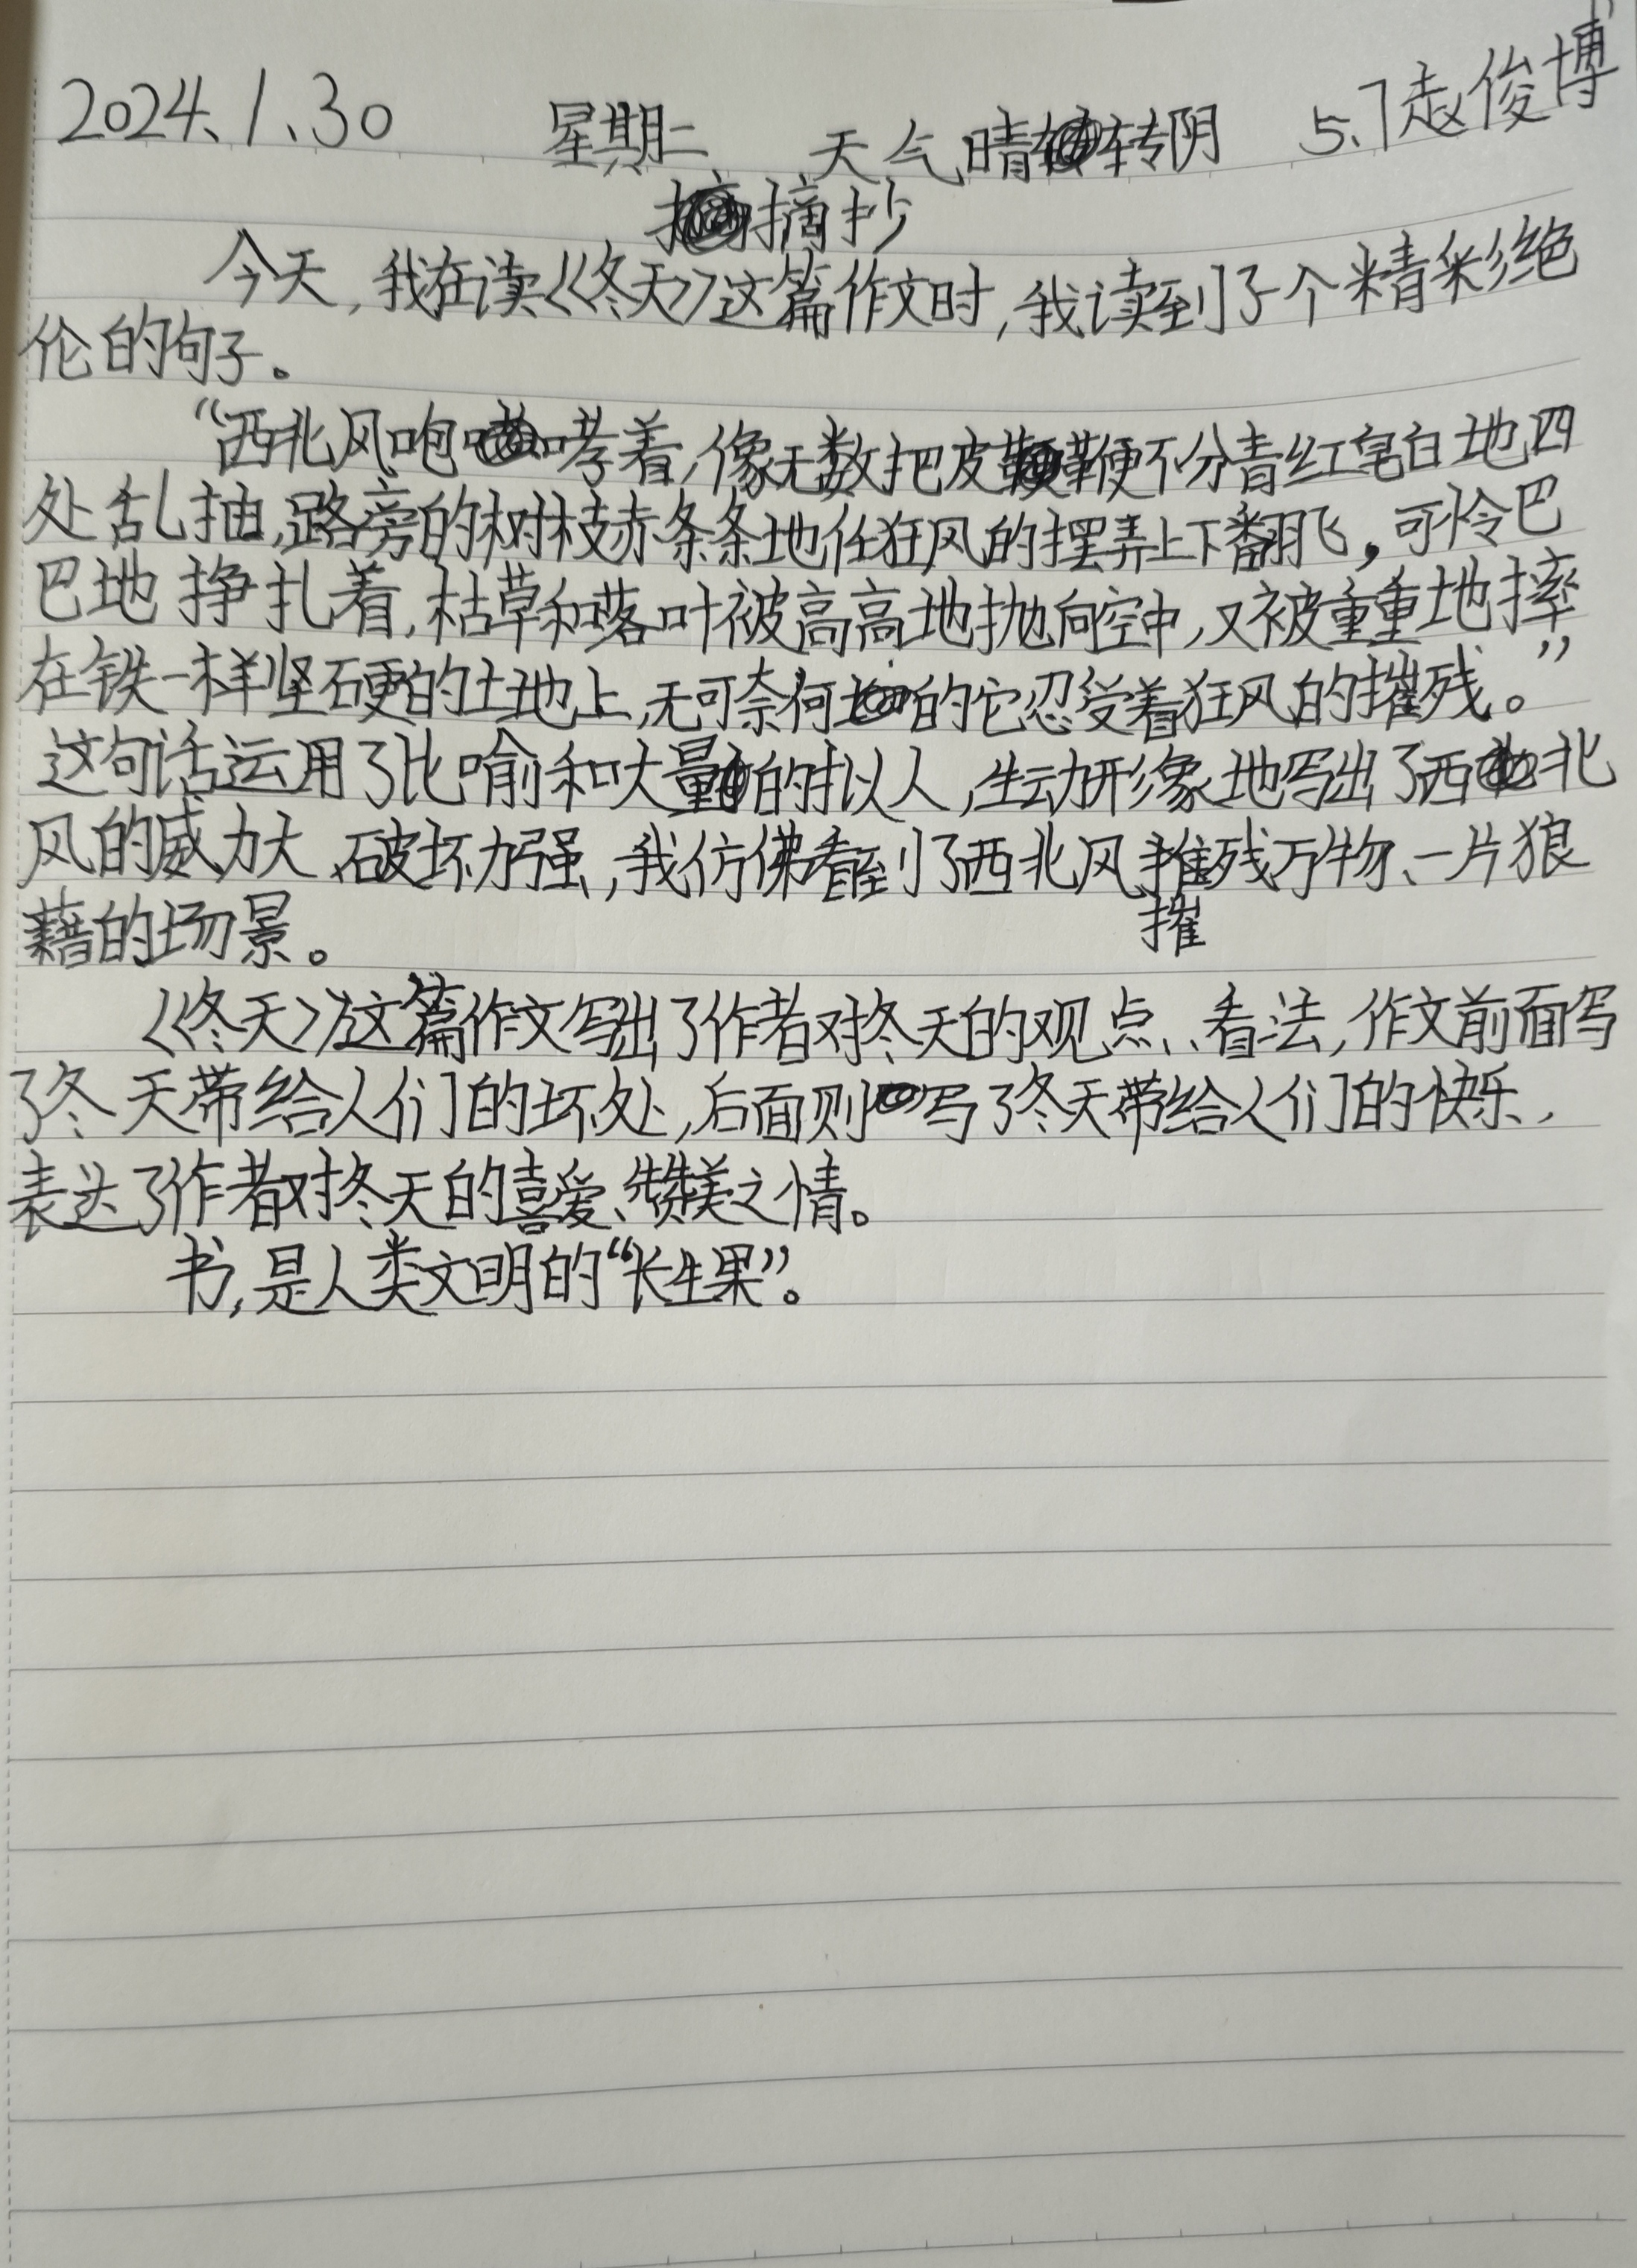 2024.1.30 星期二 天气晴转阴 5.7赵俊博
摘抄
今天,我在读《冬天》这篇作文时,我读到了个精彩绝
伦的句子。
“西北风咆哮着,像无数把皮鞭不分青红皂白地四
处乱抽,路旁的树枝赤条条地任狂风的摆弄上下翻飞,可怜巴
巴地挣扎着,枯草和落叶被高高地抛向空中,又被重重地摔
在铁一样坚硬的土地上,无可奈何的它忍受着狂风的摧残。”
这句话运用了比喻和大量的拟人,生动形象地写出了西北
风的威力大、破坏力强,我仿佛看到了西北风推残万物、一片狼
摧
藉的场景。
《冬天》这篇作文写出了作者对冬天的观点、看法,作文前面写
了冬天带给人们的坏处,后面则写了冬天带给人们的快乐,
表达了作者对冬天的喜爱、赞美之情。
书,是人类文明的“长生果”。